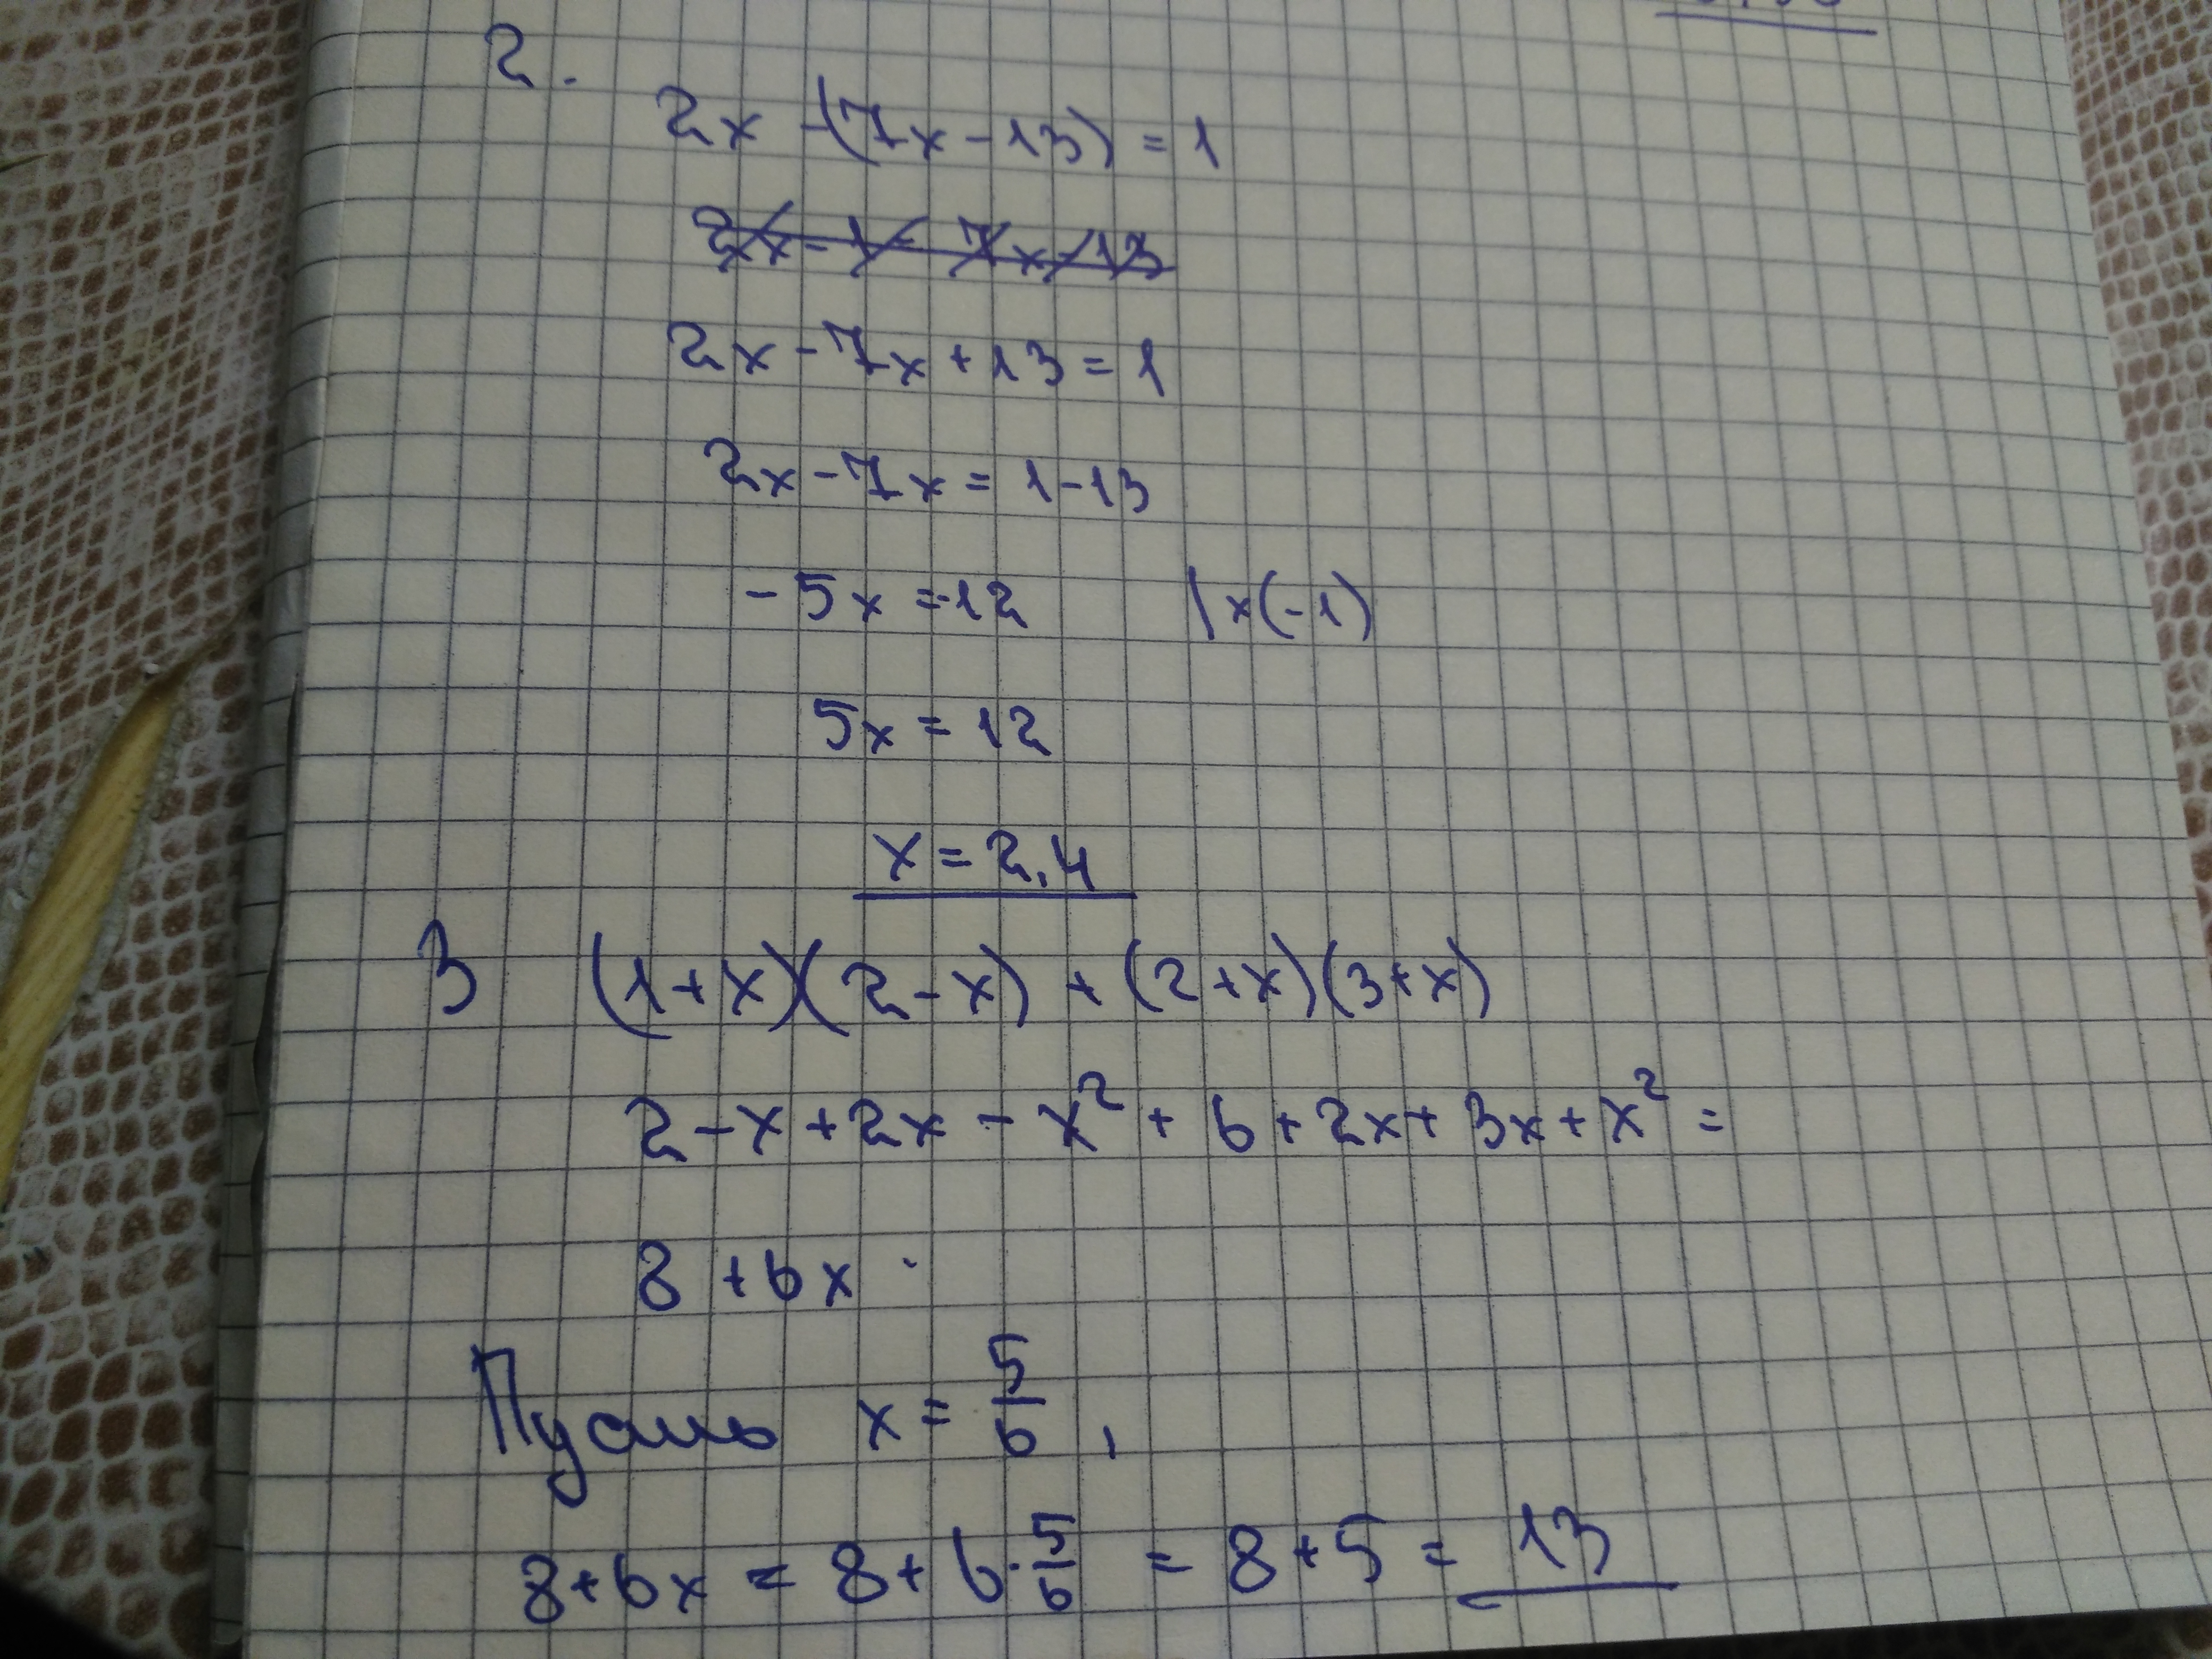 2.
2x -(7x-13) = 1
2x-7x+13=1
2x-7x=1-13
-5x=-12 |x(-1)
5x=12
x=2,4
3 (1+x)(2-x) + (2+x)(3+x)
2-x+2x-x²+6+2x+3x+x²=
8+6x
Пусть x = 5/6,
8+6x = 8+6·5/6 = 8+5 = 13